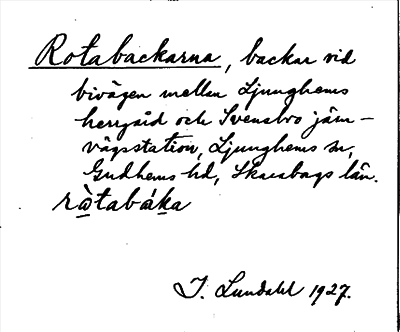 Rotabackarna, backar vid
bivägen mellan Ljunghems
herrgård och Svensbro järn-
vägsstation, Ljunghems sn,
Gudhems hd, Skaraborgs län.
rⱥ̀tabáka
I. Lundahl 1927.